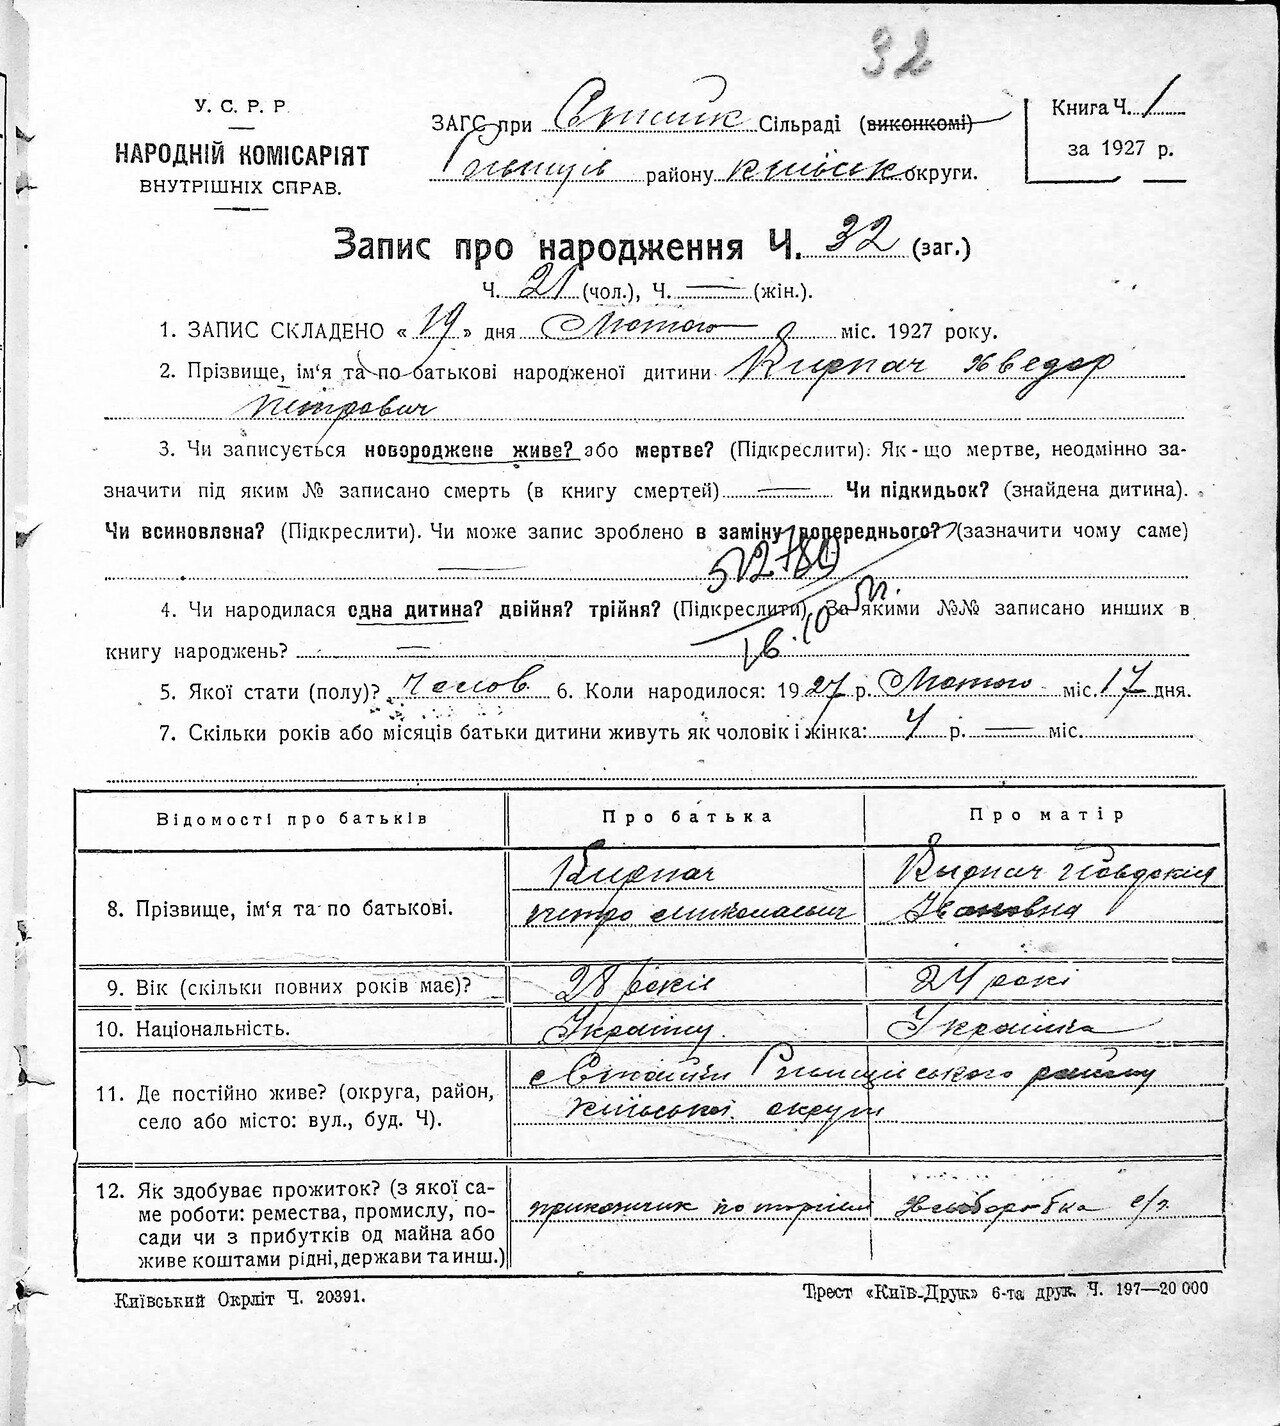 32
У. С. Р. Р.
НАРОДНІЙ КОМІСАРІЯТ
ВНУТРІШНІХ СПРАВ.
ЗАГС при Сільраді (виконкомі)
району Київськ округи.
Книга Ч. 1
за 1927 р.
Запис про народження Ч. 32 (заг.)
Ч. 21 (чол.), Ч. — (жін.).
1. ЗАПИС СКЛАДЕНО « 19 » дня Лютого міс. 1927 року.
2. Прізвище, ім'я та по-батькові народженої дитини Кирпач Хведор
Петрович
3. Чи записується новороджене живе? або мертве? (Підкреслити). Як-що мертве, неодмінно за-
значити під яким № записано смерть (в книгу смертей) — Чи підкидьок? (знайдена дитина).
Чи всиновлена? (Підкреслити). Чи може запис зроблено в заміну попереднього? (зазначити чому саме)
—
4. Чи народилася одна дитина? двійня? трійня? (Підкреслити). За якими №№ записано инших в
книгу народжень? —
5. Якої стати (полу)? Чолов 6. Коли народилося: 1927 р. Лютого міс. 17 дня.
7. Скільки років або місяців батьки дитини живуть як чоловік і жінка: 4 р. — міс.
Відомості про батьків
Про батька
Про матір
8. Прізвище, ім'я та по батькові.
Кирпач
Петро Миколаєвич
Кырпач Явдокія
Івановна
9. Вік (скільки повних років має)?
28 років
24 рокі
10. Національність.
Українец
Українка
11. Де постійно живе? (округа, район,
село або місто: вул., буд. Ч).
району
Київської округи
12. Як здобуває прожиток? (з якої са-
ме роботи: ремества, промислу, по-
сади чи з прибутків од майна або
живе коштами рідні, держави та инш.)
приказчик по торгівлі
Хлиборобка с/г.
Київський Окрліт Ч. 20391.
Трест «Київ-Друк» 6-та друк. Ч. 197—20 000